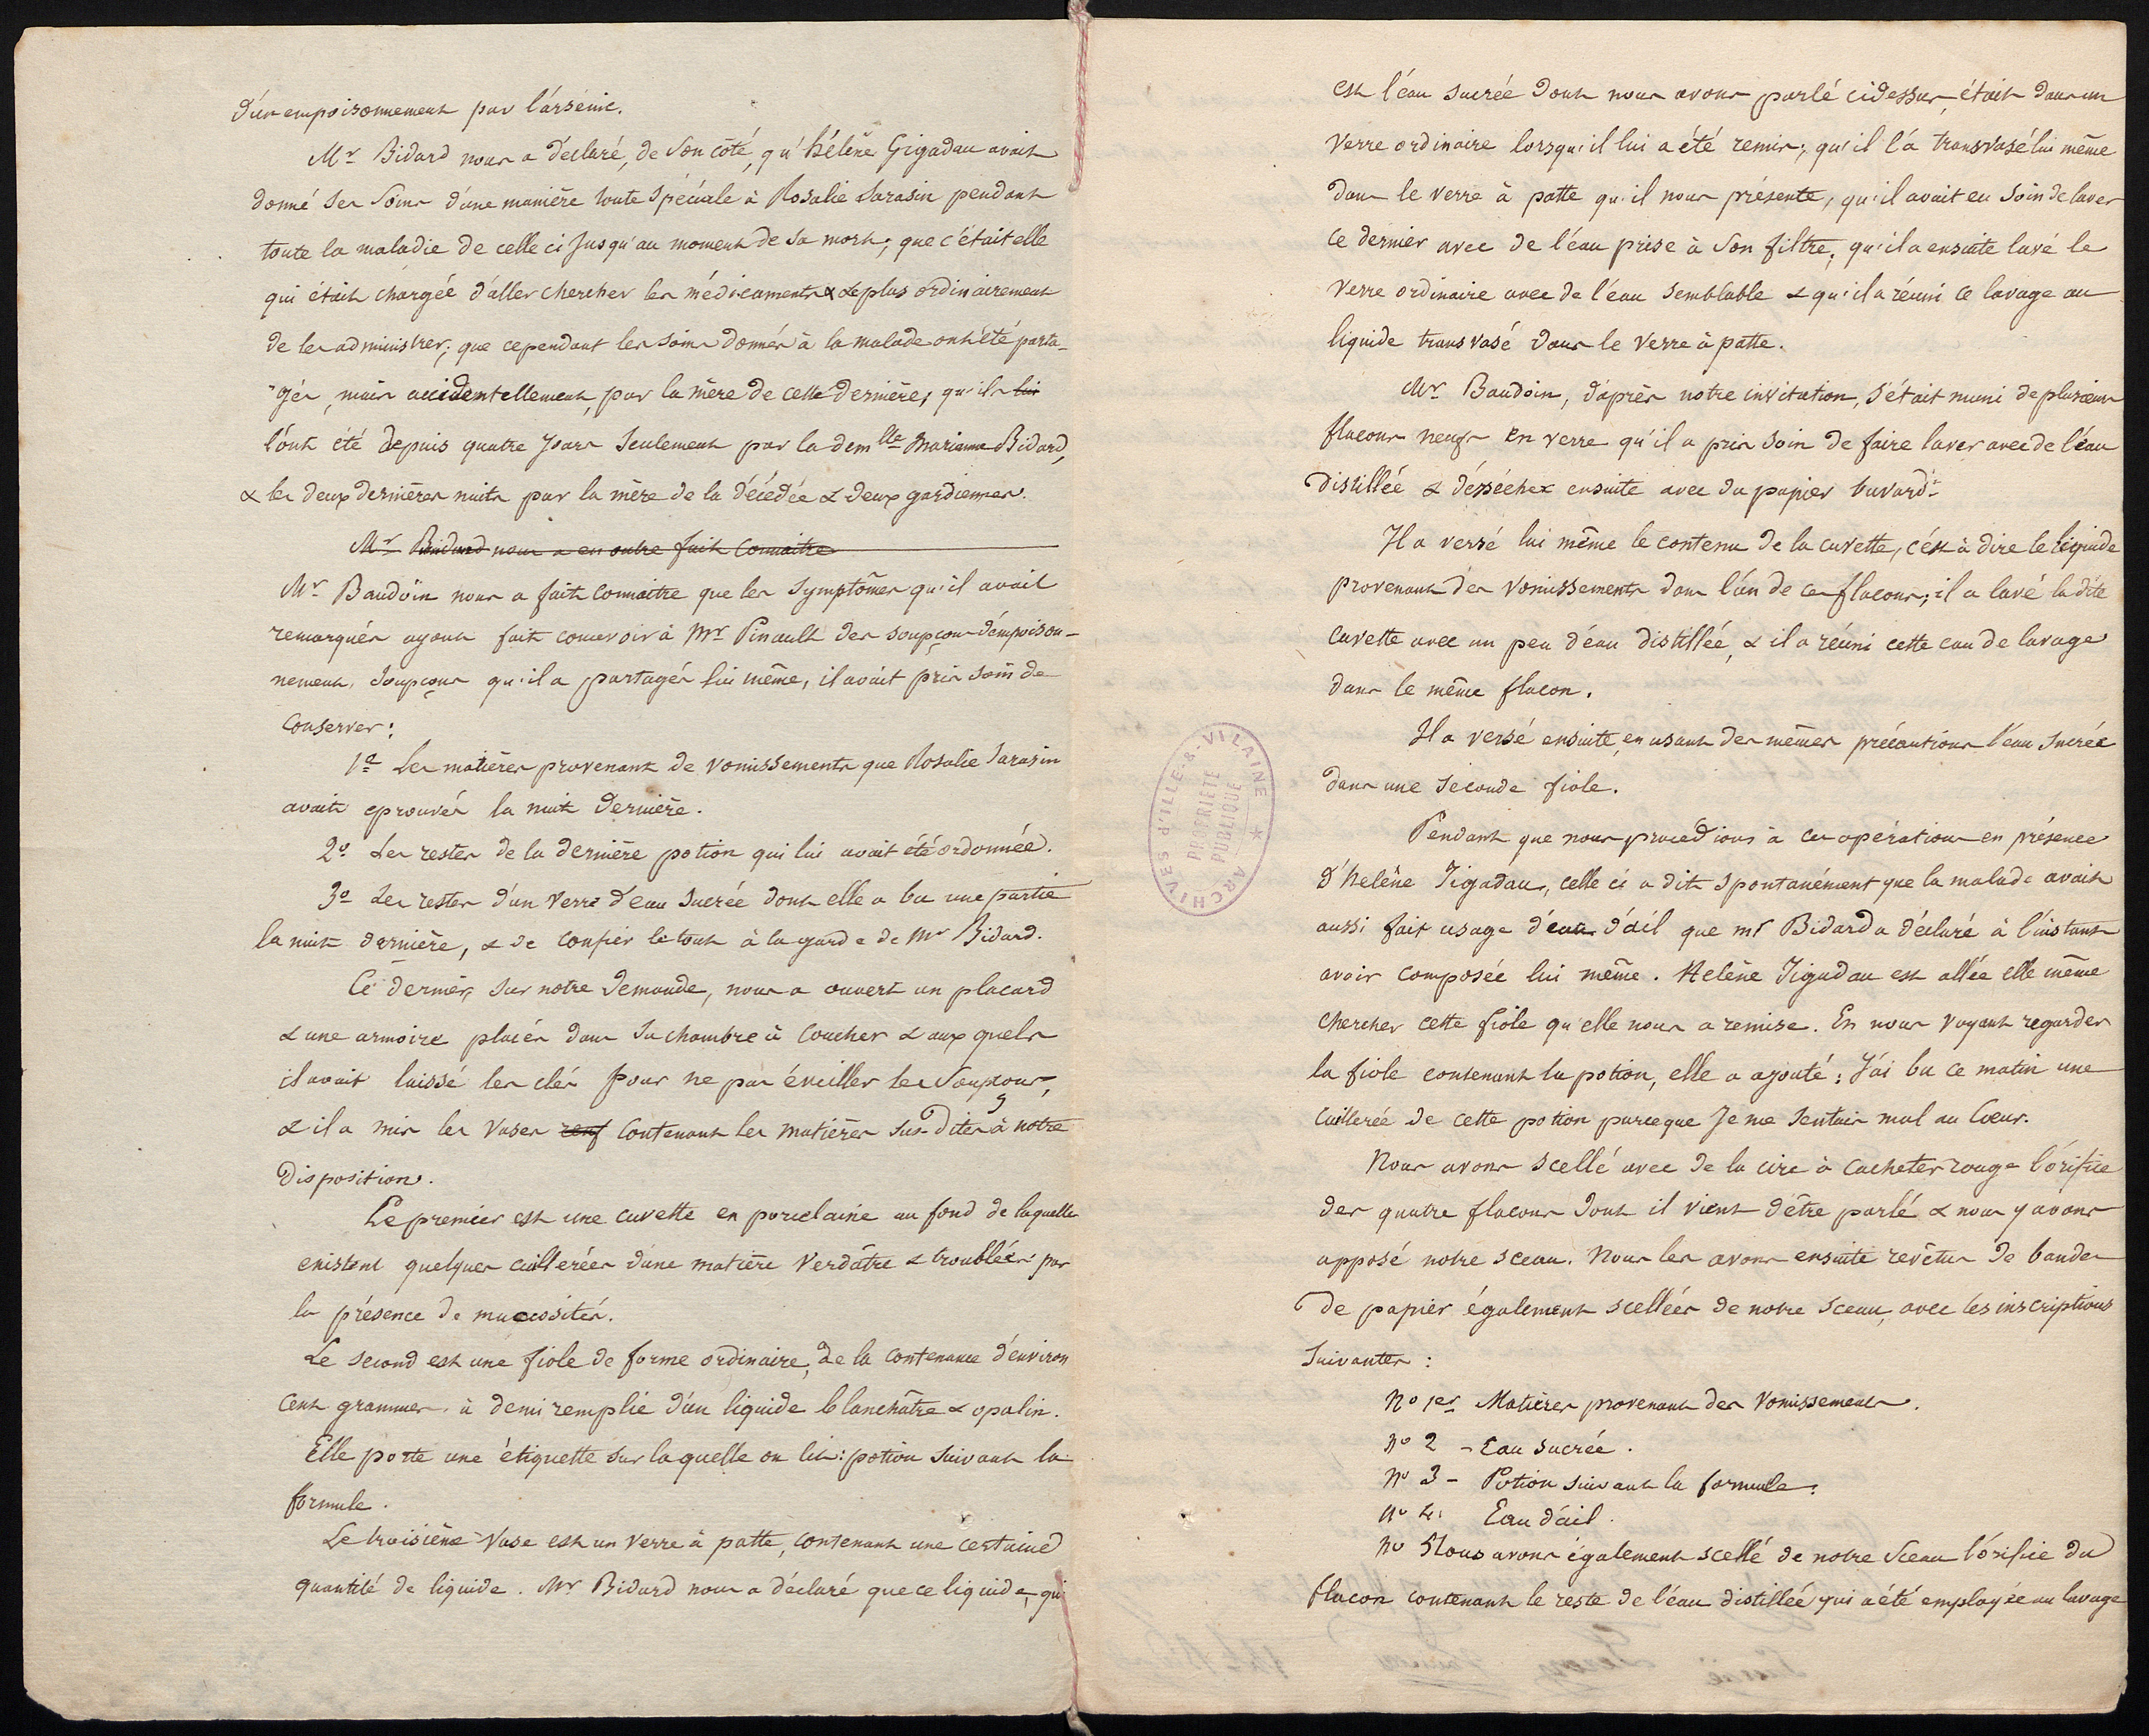 d'un empoisonnement par l'arsénic.
Mr Bidard nous a déclaré, de son coté, qu'hélène Gigadau avait
donné ses soins d'une manière toute spéciale à Rosalie Sarasin pendant
toute la maladie de celle ci jusqu'au moment de sa mort; que c'était elle
qui était chargée d'aller chercher les médicaments & le plus ordinairement
de les administrer; que cependant les soins donnés à la malade ont été parta-
-gés, mais accidentellement, par la mère de cette dernière; qu'ils lui
l'ont été depuis quatre jours seulement par la demlle marianne Bidard,
& les deux dernières nuits par la mère de la décédée & deux gardiennes.
Mr Bidard nous a en outre fait connaitre
Mr Baudoin nous a fait connaitre que les symptômes qu'il avait
remarqués ayant fait concevoir à Mr Pinault des soupçons d'empoison-
nement, soupçons qu'il a partagés lui même, il avait pris soin de
conserver:
1º Les matières provenant de vomissements que Rosalie Sarasin
avait eprouvés la nuit dernière.
2º Les restes de la dernière potion qui lui avait été ordonnée.
3º Les restes d'un verre d'eau sucrée dont elle a bu une partie
la nuit dernière, & de confier le tout à la garde de Mr Bidard.
Ce dernier, sur notre demande, nous a ouvert un placard
& une armoire placés dans sa chambre à coucher & aux quels
il avait laissé les clés pour ne pas éveiller les soupçons,
& il a mis les vases renf contenant les matières sus-dites à notre
disposition.
Le premier est une cuvette en porcelaine au fond de laquelle
existent quelques cuillerées d'une matière verdâtre & troublée par
la présence de mucosités.
Le second est une fiole de forme ordinaire, de la contenance d'environ
cent grammes, à demi remplie d'un liquide blanchâtre & opalin.
Elle porte une étiquette sur laquelle on lit: potion suivant la
formule.
Le troisième vase est un verre à patte, contenant une certaine
quantité de liquide. Mr Bidard nous a déclaré que ce liquide, qui
est l'eau sucrée dont nous avons parlé cidessus, était dans un
verre ordinaire lorsqu'il lui a été remis; qu'il l'a transvasé lui même
dans le verre à patte qu'il nous présente, qu'il avait eu soin de laver
ce dernier avec de l'eau prise à son filtre, qu'il a ensuite lavé le
verre ordinaire avec de l'eau semblable & qu'il a réuni ce lavage au
liquide transvasé dans le verre à patte.
Mr Baudoin, d'après notre invitation, s'était muni de plusieurs
flacons neufs en verre qu'il a pris soin de faire laver avec de l'eau
distillée & dessécher ensuite avec du papier buvard.
Il a versé lui même le contenu de la cuvette, c'est à dire le liquide
provenant des vomissements dans l'un de ces flacons; il a lavé la dite
cuvette avec un peu d'eau distillée, & il a réuni cette eau de lavage
dans le même flacon.
Il a versé ensuite, en usant des mêmes précautions l'eau sucrée
dans une seconde fiole.
Pendant que nous procedions à ces opérations en présence
d'helène Jigadau, celle ci a dit spontanément que la malade avait
aussi fait usage d'eau d'ail que mr Bidard a déclaré à l'instant
avoir composée lui même. Helène Jigadau est allée elle même
chercher cette fiole qu'elle nous a remise. En nous voyant regarder
la fiole contenant la potion, elle a ajouté: J'ai bu ce matin une
cuillerée de cette potion parceque je me sentais mal au coeur.
Nous avons scellé avec de la cire à cacheter rouge l'orifice
des quatre flacons dont il vient d'être parlé & nous y avons
apposé notre sceau. Nous les avons ensuite revêtus de bandes
de papier également scellées de notre sceau, avec les inscriptions
suivantes:
No 1er Matières provenant des vomissements.
No 2 - Eau sucrée.
No 3 - Potion suivant la formule.
No 4. Eau d'ail.
No Nous avons également scellé de notre sceau l'orifice du
flacon contenant le reste de l'eau distillée qui a été employée au lavage
ARCHIVES d'ILLE-&-VILAINE
PROPRIETE
PUBLIQUE